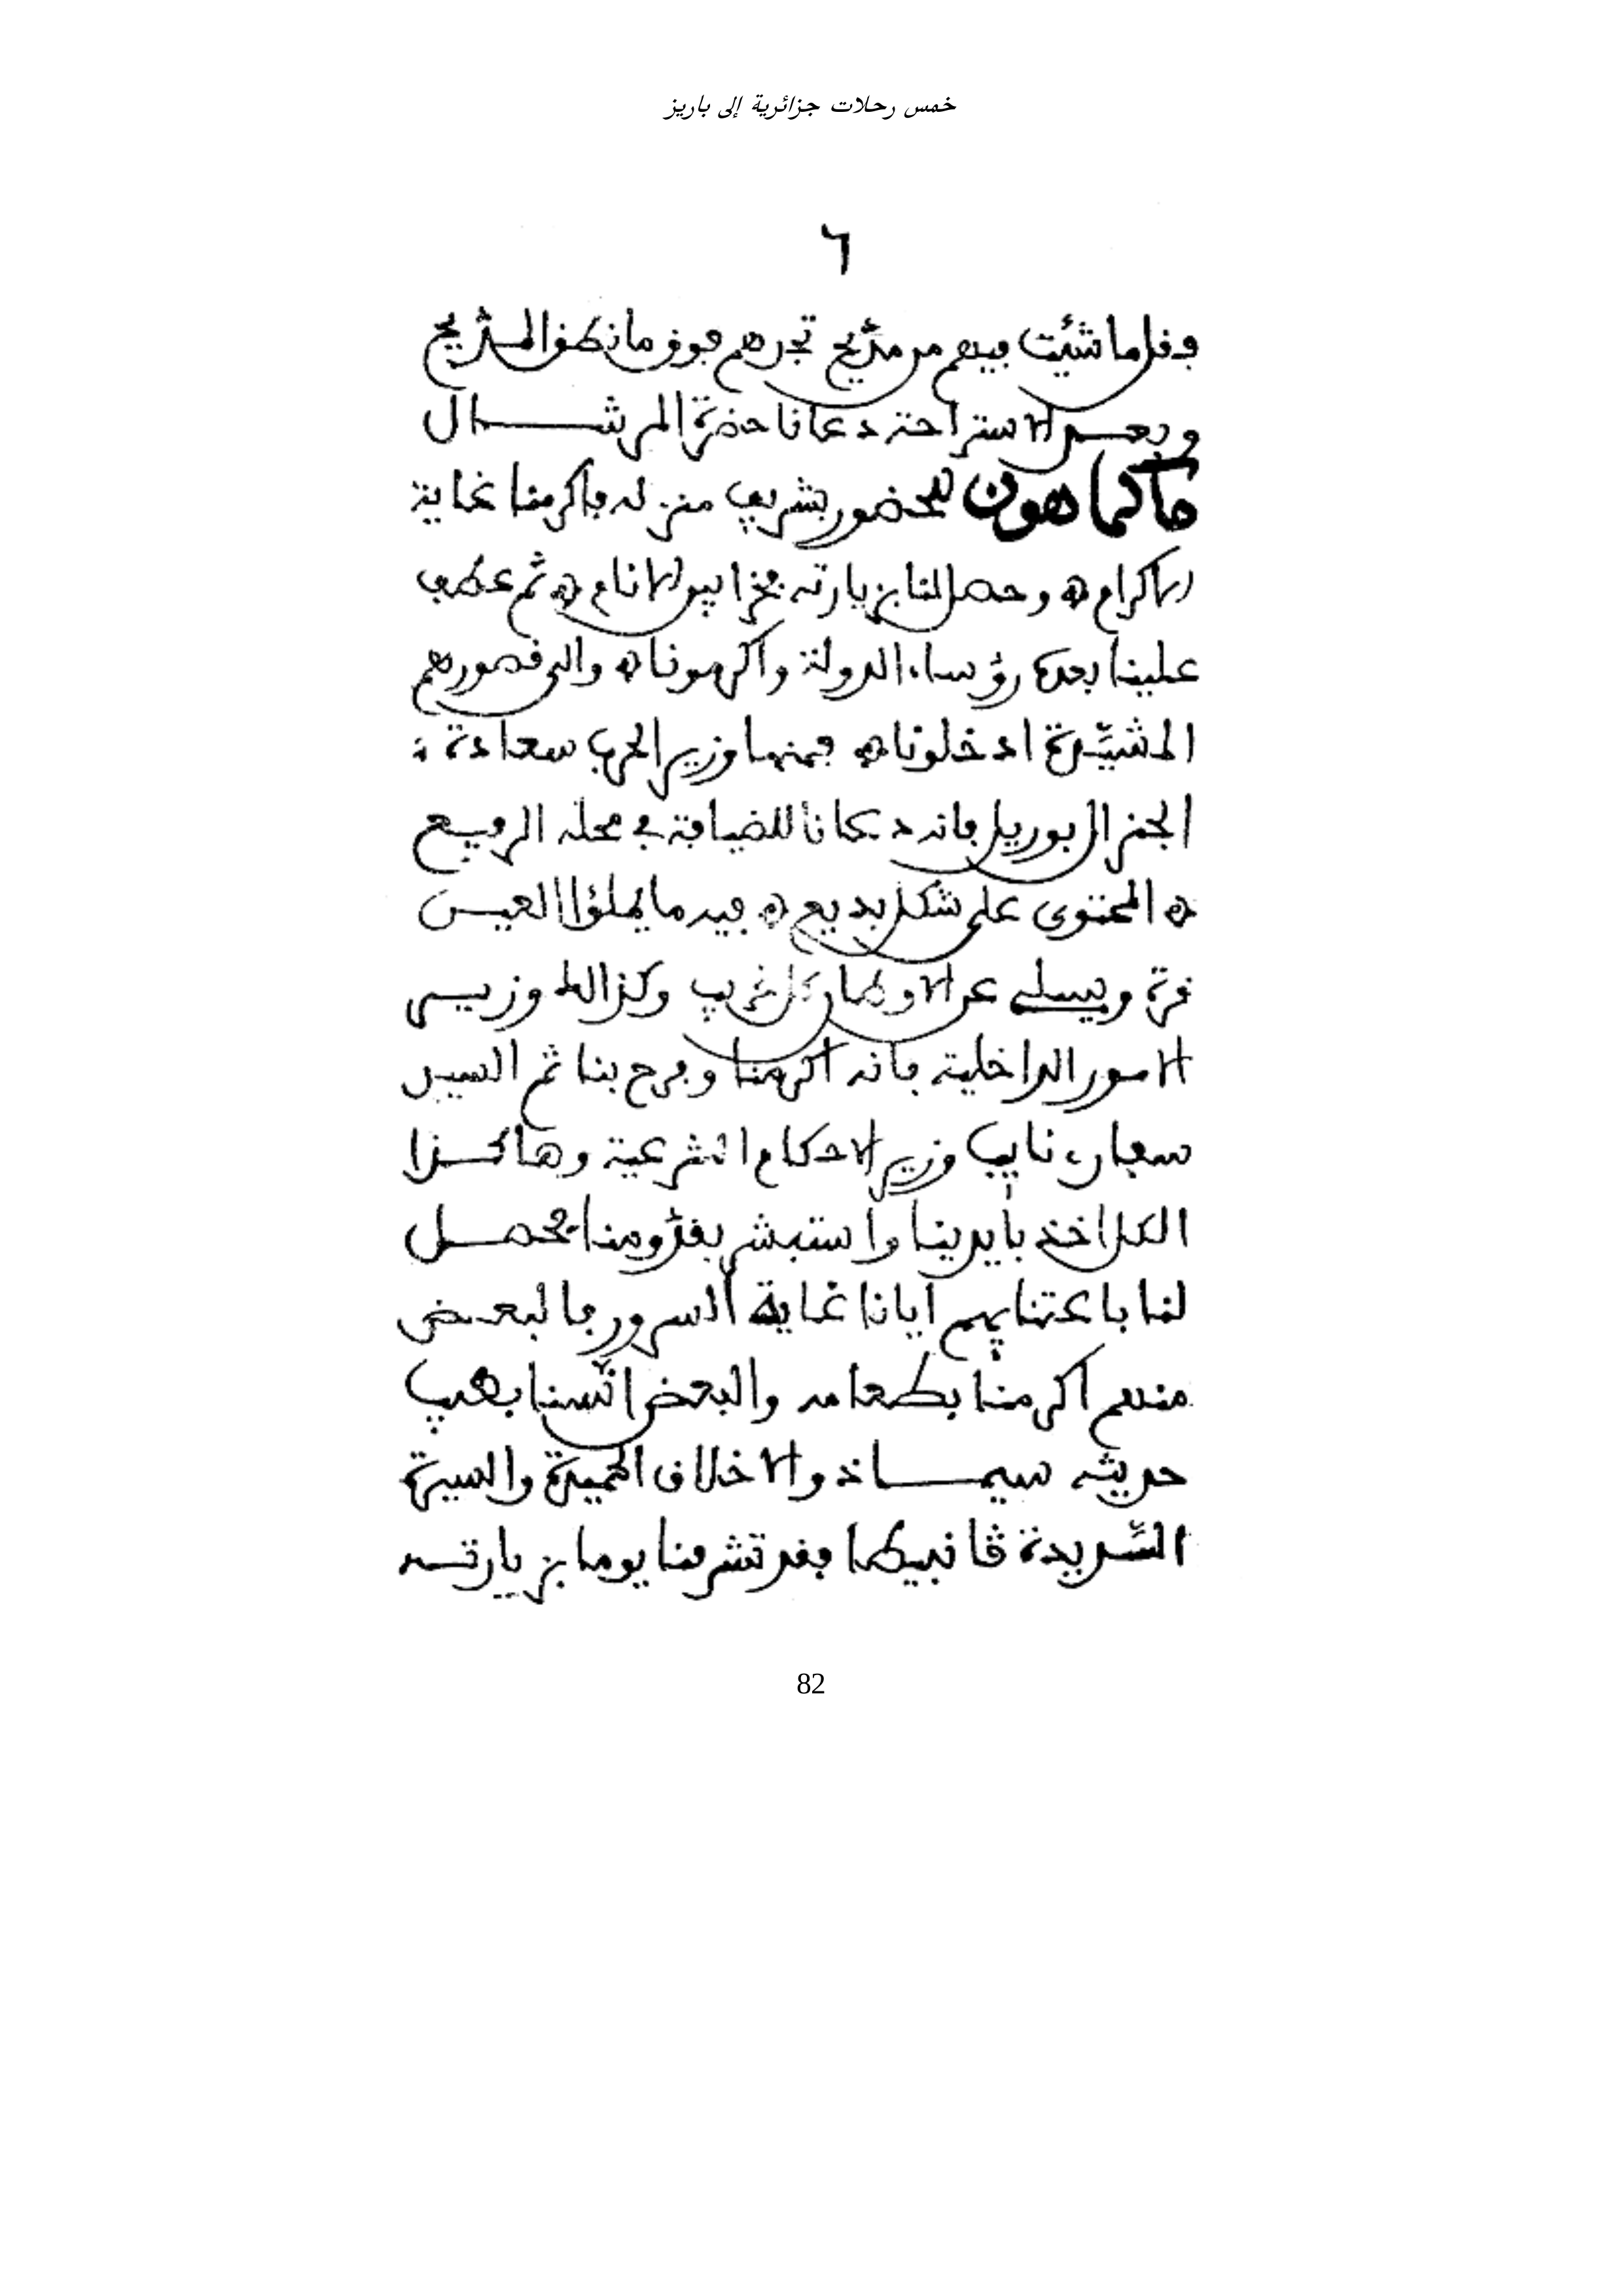 خمس رحلات جزائرية إلى باريز
٦
وقل ما شئت فيهم من مديح تجدهم فوق ما نطق المديح
وبعد الاستراحة دعانا حضرة المرشال
ماكماهون للحضور بشريف منزله فاكرمنا غاية
الاكرام ه وحصل لنا بزيارته فخرا بين الانام ه ثم عطف
علينا بعده رؤساء الدولة واكرمونا ه والى قصورهم
المشيّدة ادخلونا ه فمنها وزير الحرب سعادة
الجنرال بوريل فانه دعانا للضيافة في محله الرفيع
ه المحتوى على شكل بديع ه فيه ما يملؤا العين
قرة ويسلي عن الاوطان كل غريب وكذالك وزير
الامور الداخلية فانه اكرمنا وفرح بنا ثم السيد
نايب وزير الاحكام الشرعية وهاكذا
الكل اخذ بايدينا واستبشر بقدومنا فحصل
لنا باعتنايهم ايانا غاية السرور فالبعض
منهم اكرمنا بطعامه والبعض انّسنا بطيب
حديثه سيما ذو الاخلاق الحميدة والسيرة
السّديدة ڨانبيطا فقد تشرفنا يوما بزيارته
82